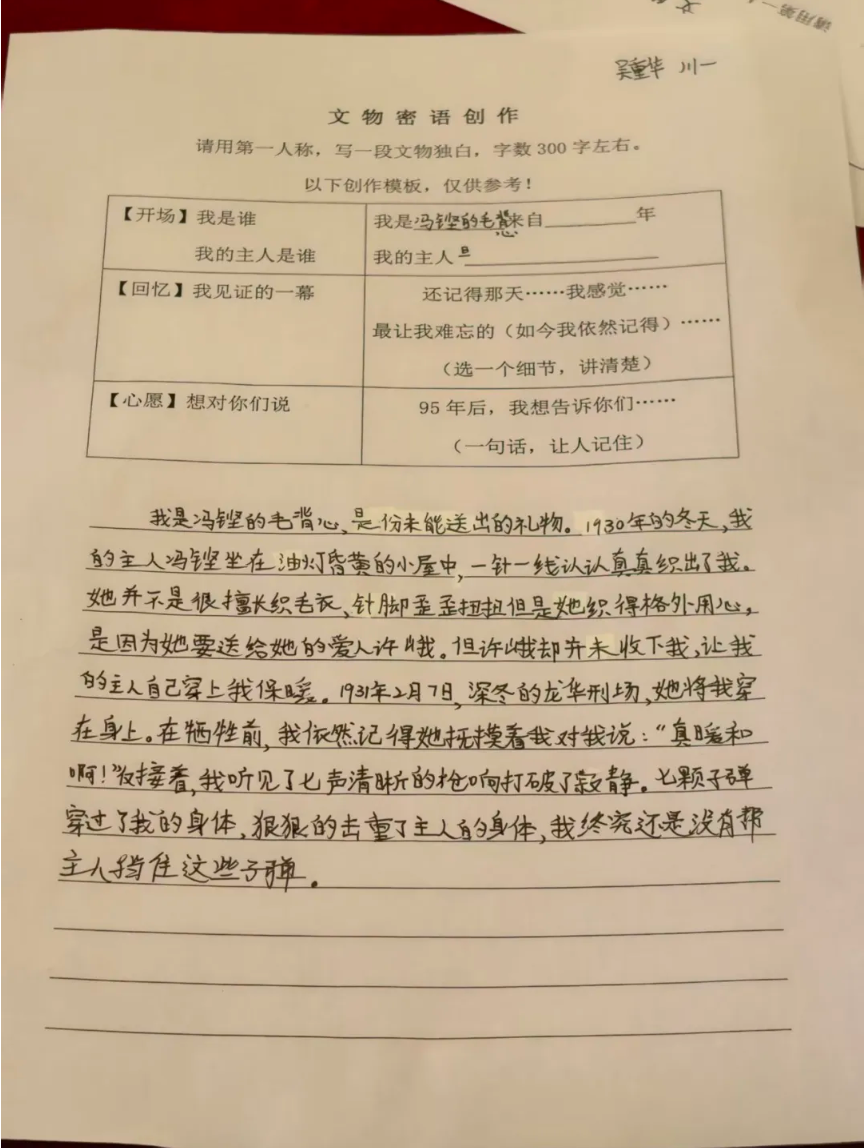 请用第一人
吴重华 川一
文物密语创作
请用第一人称，写一段文物独白，字数 300 字左右。
以下创作模板，仅供参考！
【开场】我是谁
我的主人是谁
我是冯铿的毛背心来自________年
我的主人是________________
【回忆】我见证的一幕
还记得那天……我感觉……
最让我难忘的（如今我依然记得）……
（选一个细节，讲清楚）
【心愿】想对你们说
95 年后，我想告诉你们……
（一句话，让人记住）
我是冯铿的毛背心，是份未能送出的礼物。1930年的冬天，我
的主人冯铿坐在油灯昏黄的小屋中，一针一线认认真真织出了我。
她并不是很擅长织毛衣，针脚歪歪扭扭但是她织得格外用心，
是因为她要送给她的爱人许峨。但许峨却并未收下我，让我
的主人自己穿上我保暖。1931年2月7日，深冬的龙华刑场，她将我穿
在身上。在牺牲前，我依然记得她抚摸着我对我说：“真暖和
啊！”接着，我听见了七声清晰的枪响打破了寂静。七颗子弹
穿过了我的身体，狠狠的击重了主人的身体，我终究还是没有帮
主人挡住这些子弹。